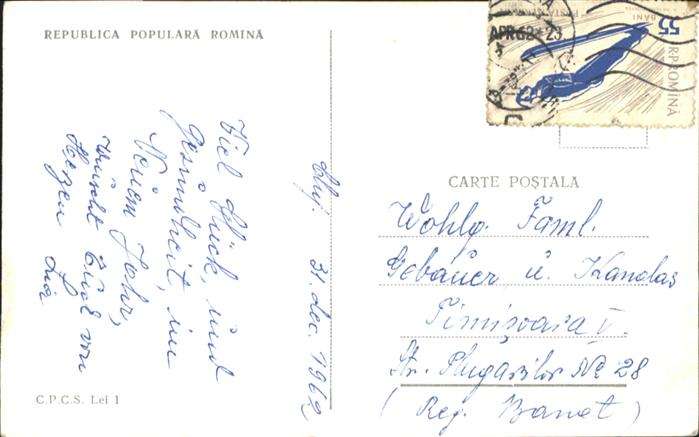 REPUBLICA POPULARĂ ROMÎNĂ
Viel Glück, und
Gesundheit, im
Neuem Jahr,
wünscht Euch von
Herzen
Cluj. 31. dec. 1962
C.P.C.S. Lei 1
APR 62 * 23
POSTA
55
BANI
R.P.ROMINA
CARTE POȘTALĂ
Wohlg. Faml.
Gebauer u. Kandas
Timișoara V.
Str. Plugarilor NR 28
(Reg. Banat)